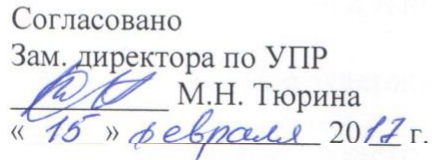 Согласовано
Зам. директора по УПР
____________ М.Н. Тюрина
« 15 » февраля 2017 г.